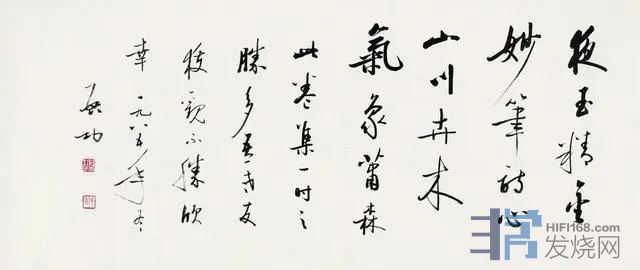 玉精金
妙筆詩心
山川卉木
氣象蕭森
此卷集一時之
勝多吾友
獲觀不勝欣
幸 一九八五年冬
啟功
HIFI168.com
发烧网